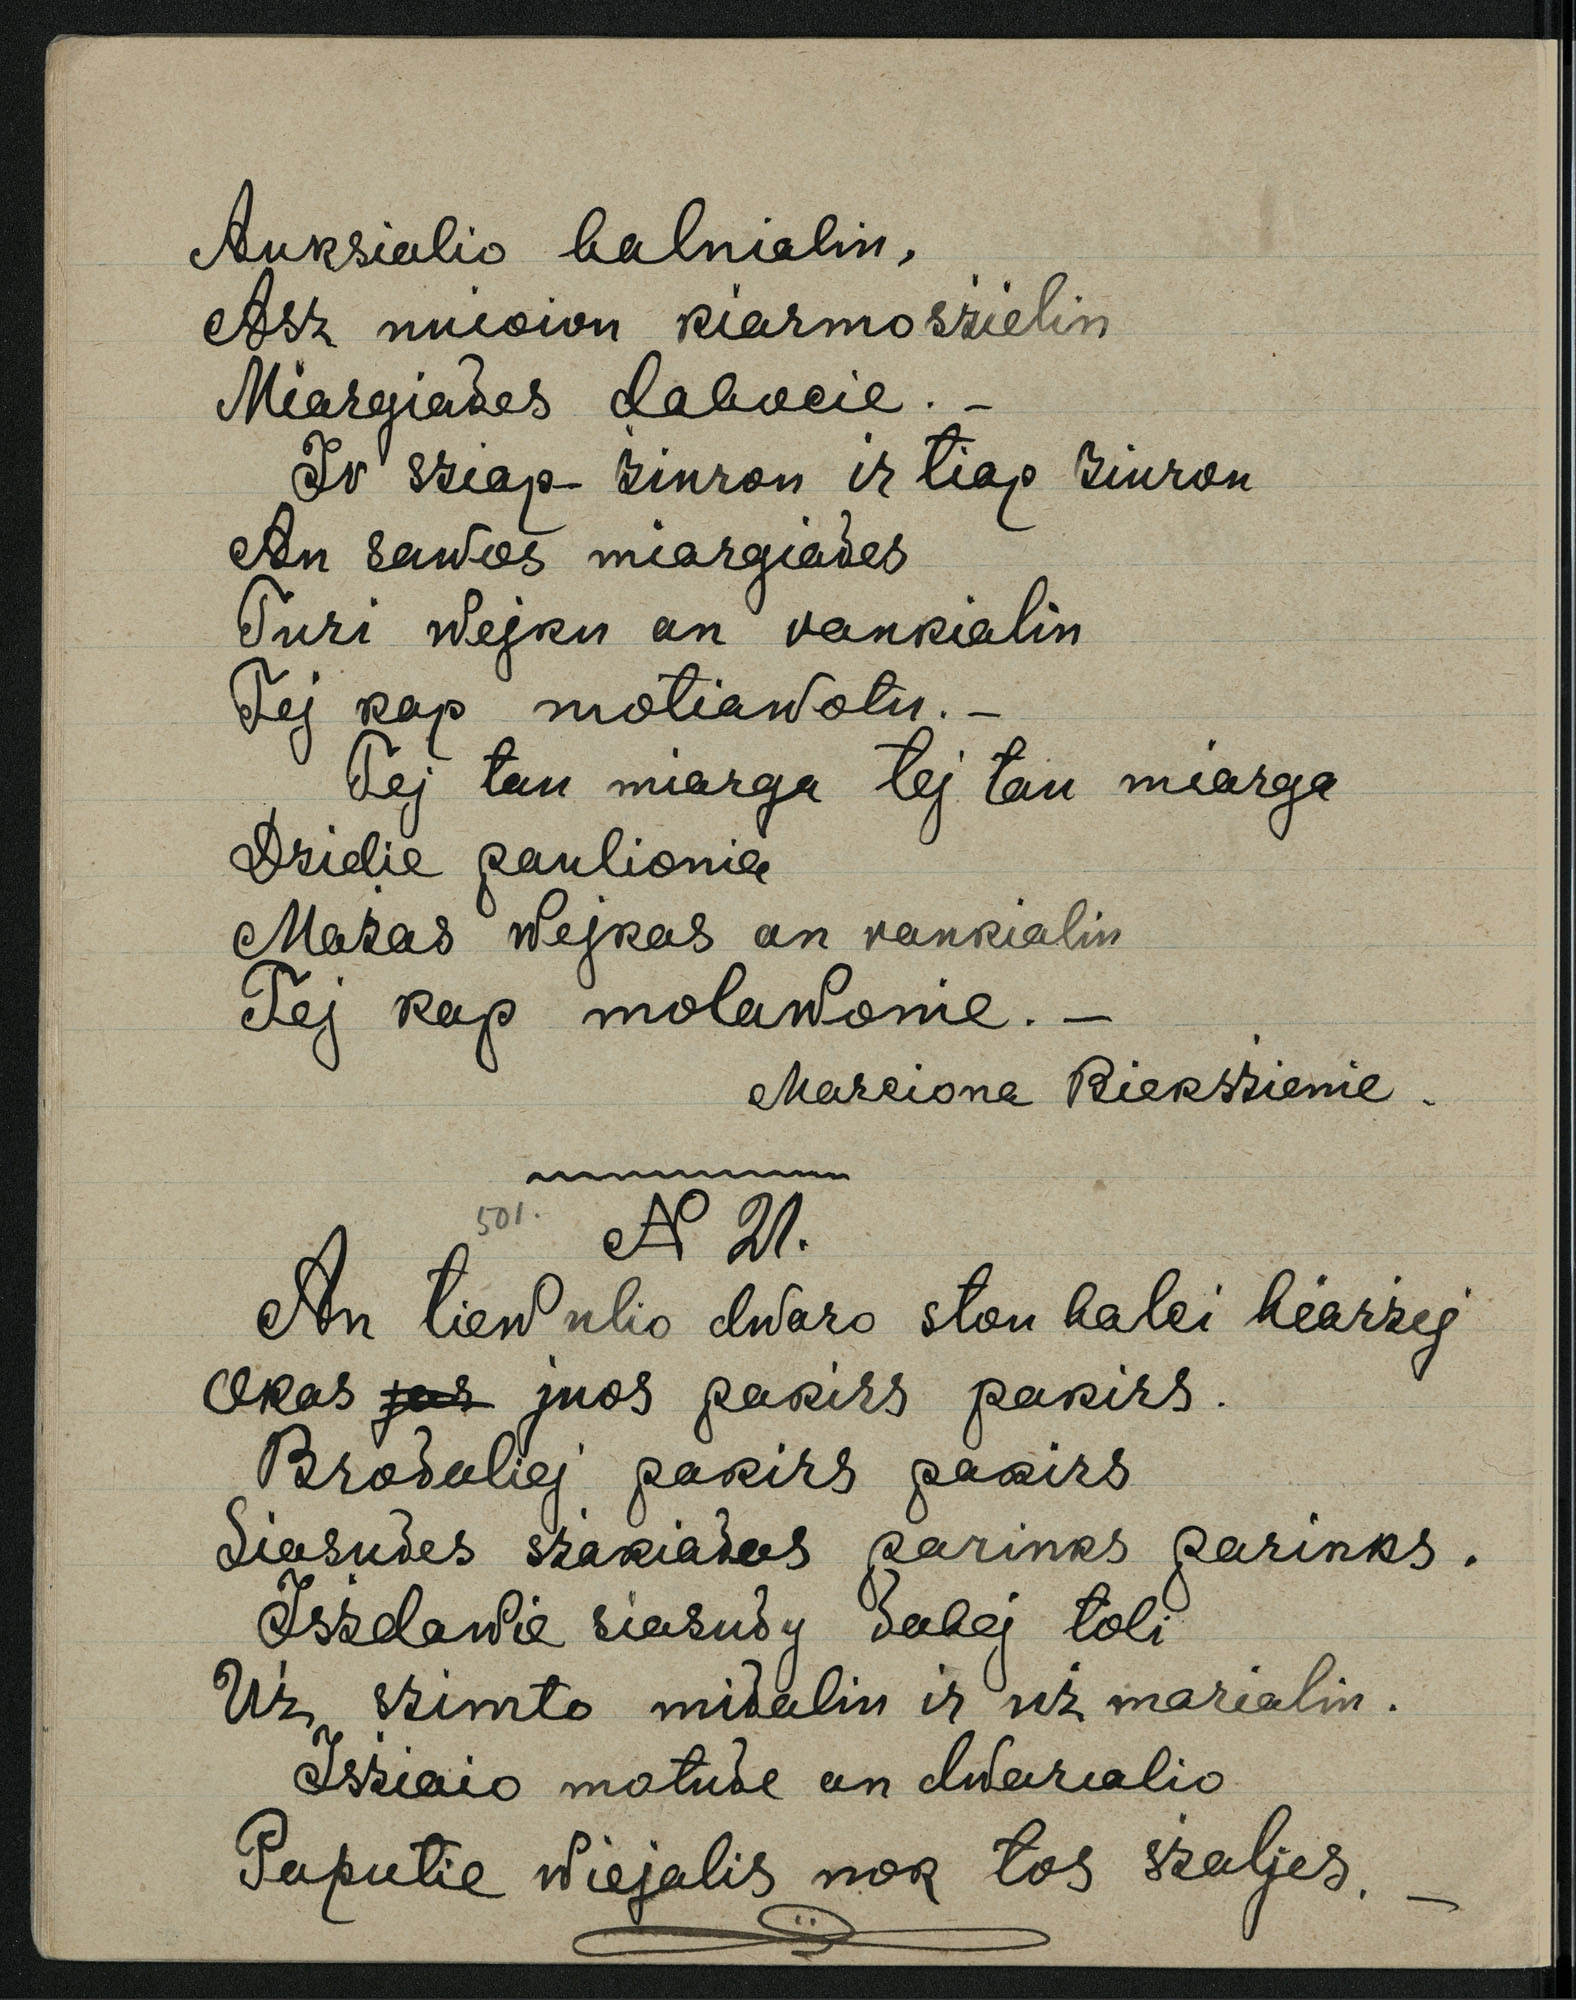 Auksialio balnialin,
Asz nuioion kiarmoszielin
Miargiałes dabocie. –
Jo sziap żiuron ir tiap żiuron
An sawos miargiałes
Turi wejku an rankialin
Tej kap motiawotu. –
Tej tau miarga tej tau miarga
Dzidie paulionia
Mażas wejkas an rankialin
Tej kap molawonie. –
Marciona Biekszienie.
501. N 21.
An tiewulio dwaro stou balci biarżej
O kas juos pakirs pakirs.
Brołaliej pakirs pakirs
Siasułes szakiałas parinks parinks.
Iszdawie siasuły łabej toli
Uż szimto miłalin ir uż marialin.
Isziaio motułe an dwarialio
Paputie wiejalis nok tos szaljes. –